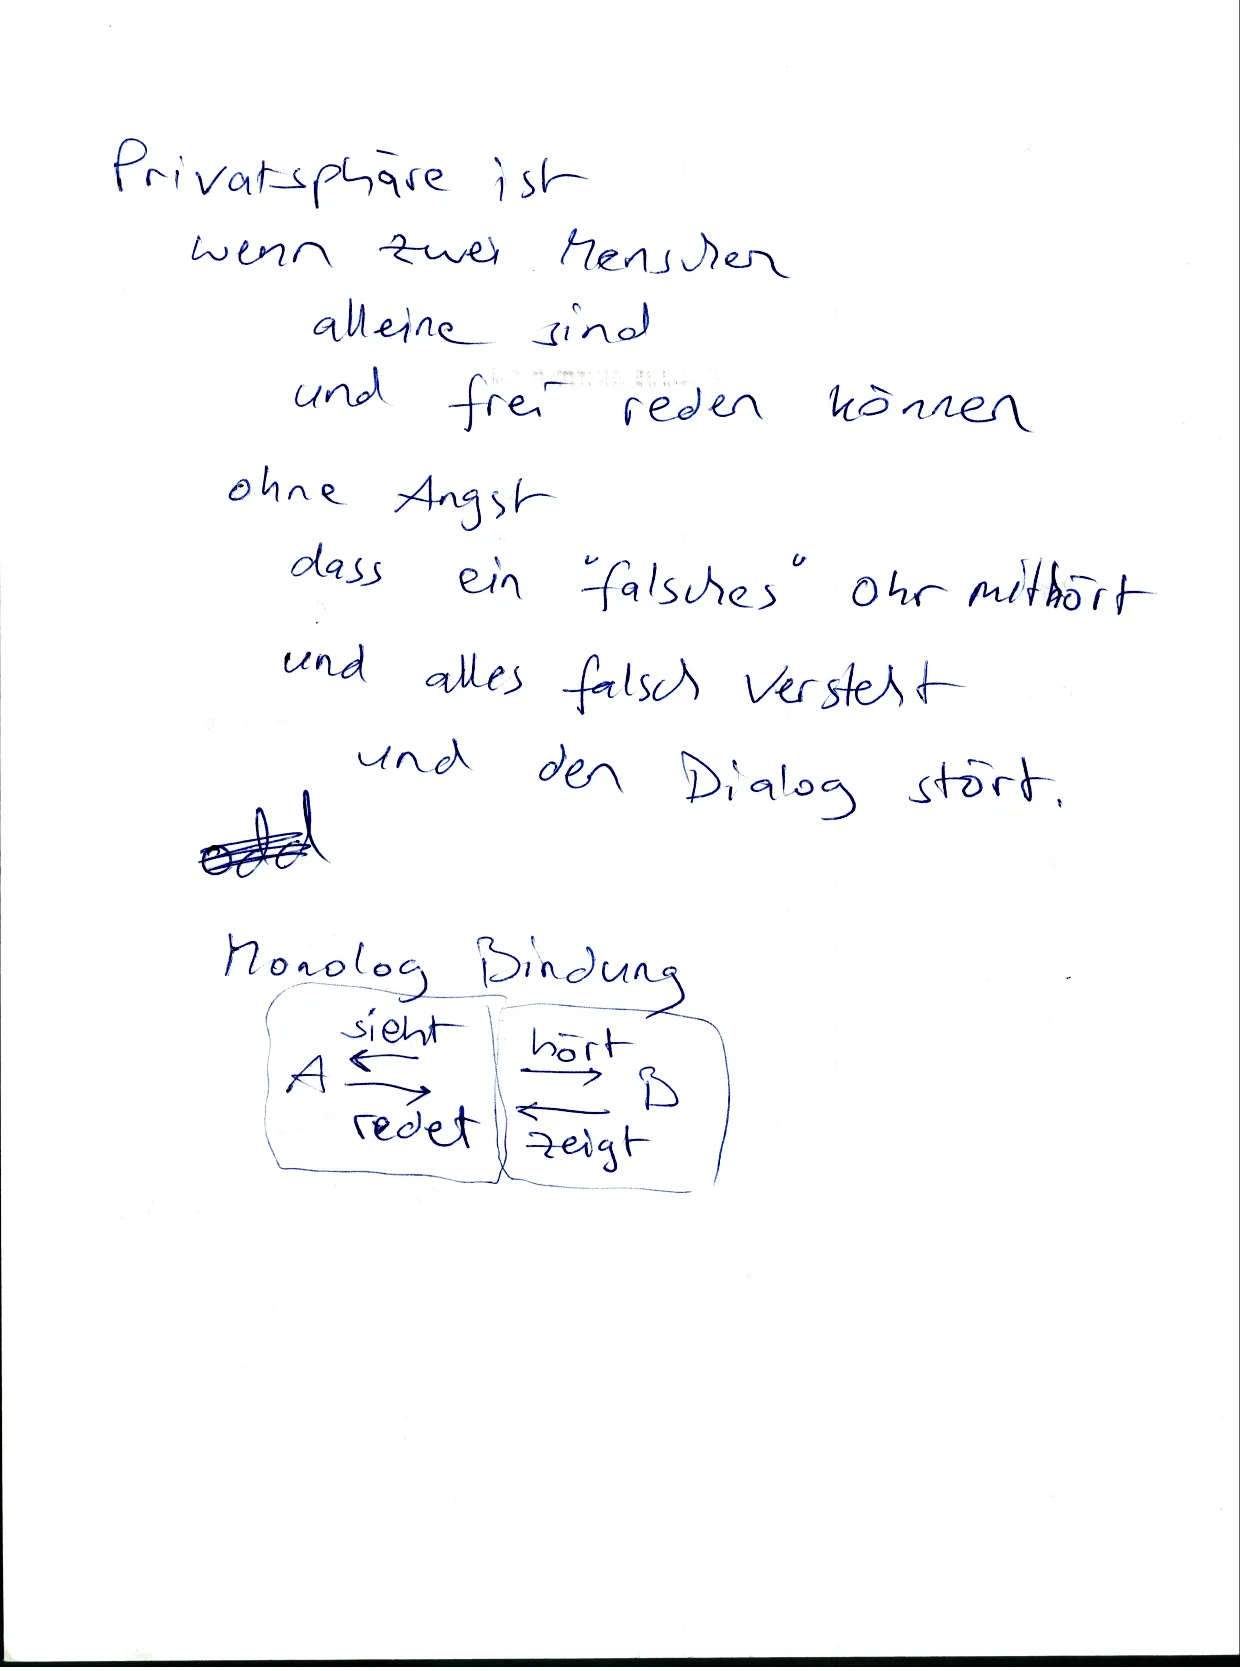 Privatsphäre ist
wenn zwei Menschen
alleine sind
und frei reden können
ohne Angst
dass ein "falsches" Ohr mithört
und alles falsch versteht
und den Dialog stört.
Monolog Bindung
sieht hört
A B
redet zeigt